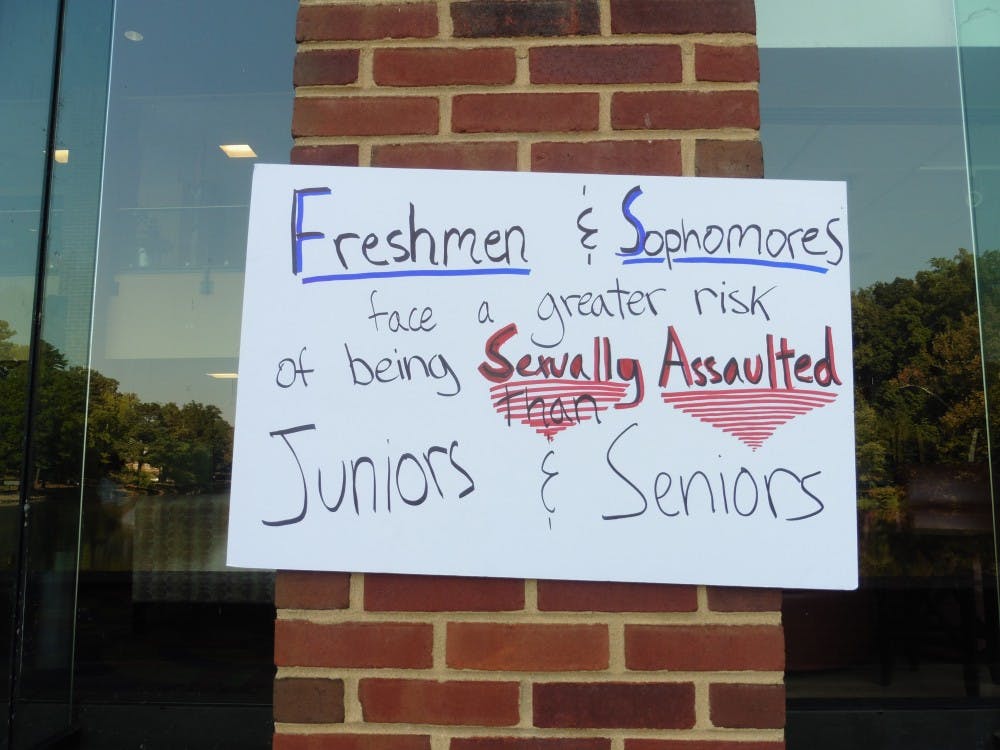 Freshmen & Sophomores
face a greater risk
of being Sexually Assaulted
than
Juniors & Seniors